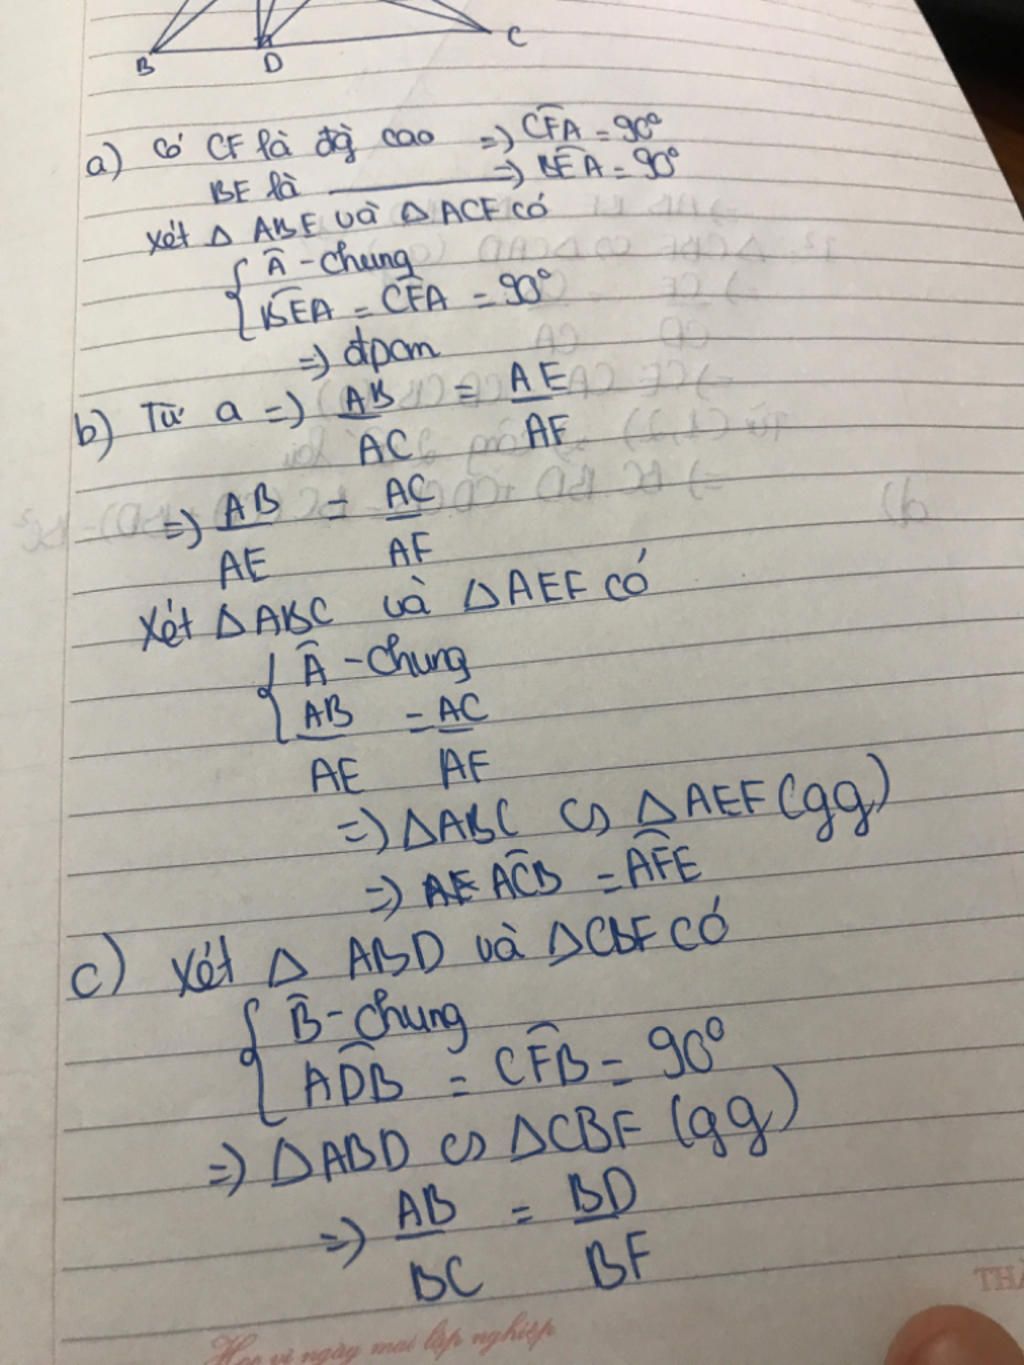 B D C
a) Có CF là đg cao => CFA = 90°
BE là ———— => BEA = 90°
Xét Δ ABE và Δ ACF có
{ Â - chung
BEA = CFA = 90°
=> đpcm
b) Từ a => AB/AC = AE/AF
=> AB/AE = AC/AF
Xét ΔABC và ΔAEF có
{ Â - chung
AB/AE = AC/AF
=> ΔABC ∽ ΔAEF (gg)
=> ACB = AFE
c) Xét Δ ABD và ΔCBF có
{ B̂ - chung
ADB = CFB = 90°
=> ΔABD ∽ ΔCBF (gg)
=> AB/BC = BD/BF
THÀ
Học vì ngày mai lập nghiệp